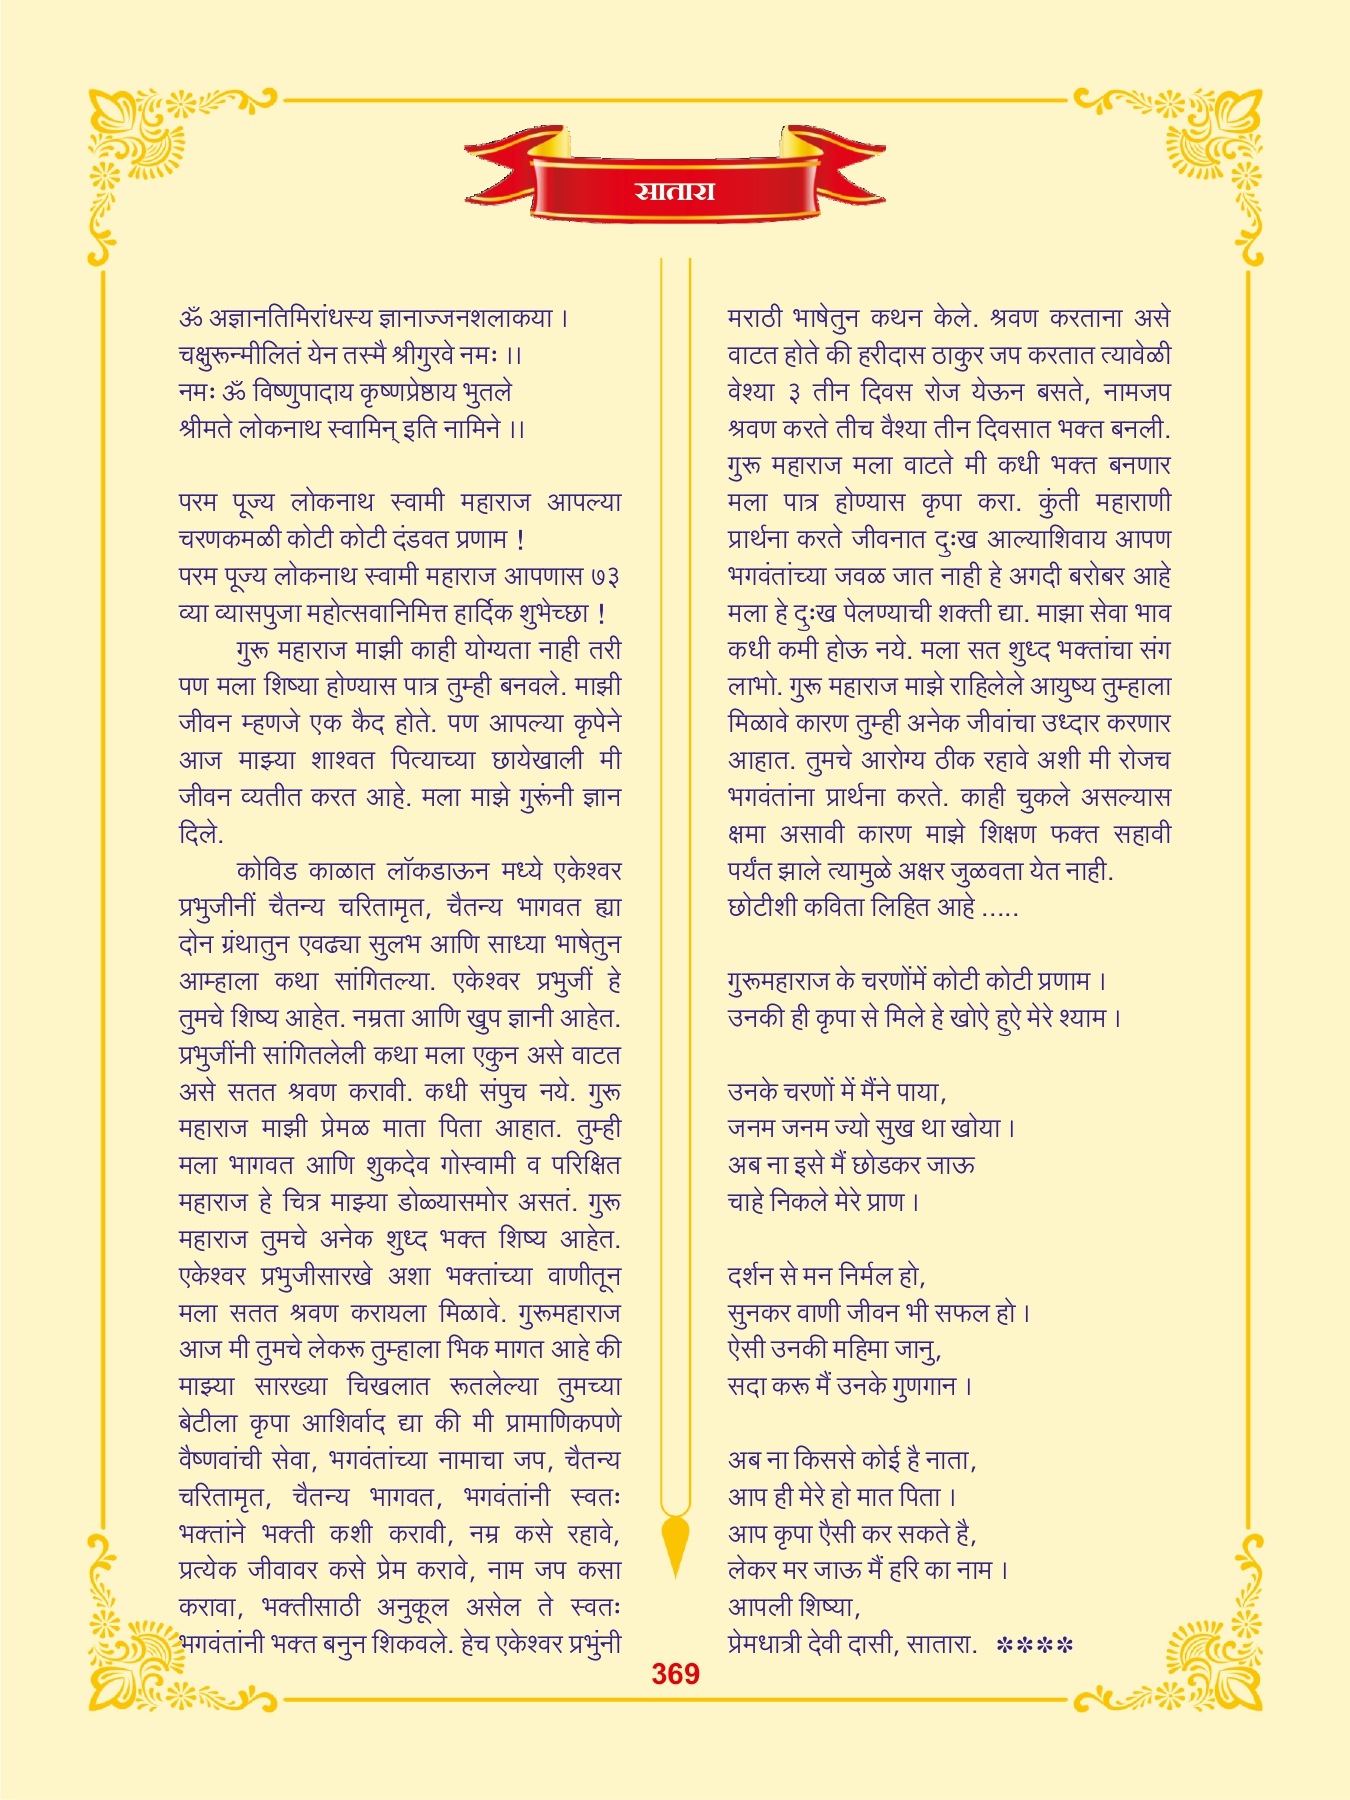 सातारा
ॐ अज्ञानतिमिरांधस्य ज्ञानाज्जनशलाकया ।
चक्षुरून्मीलितं येन तस्मै श्रीगुरवे नमः ।।
नमः ॐ विष्णुपादाय कृष्णप्रेष्ठाय भुतले
श्रीमते लोकनाथ स्वामिन् इति नामिने ।।
परम पूज्य लोकनाथ स्वामी महाराज आपल्या
चरणकमळी कोटी कोटी दंडवत प्रणाम !
परम पूज्य लोकनाथ स्वामी महाराज आपणास ७३
व्या व्यासपुजा महोत्सवानिमित्त हार्दिक शुभेच्छा !
गुरू महाराज माझी काही योग्यता नाही तरी
पण मला शिष्या होण्यास पात्र तुम्ही बनवले. माझी
जीवन म्हणजे एक कैद होते. पण आपल्या कृपेने
आज माझ्या शाश्वत पित्याच्या छायेखाली मी
जीवन व्यतीत करत आहे. मला माझे गुरूंनी ज्ञान
दिले.
कोविड काळात लॉकडाऊन मध्ये एकेश्वर
प्रभुजीनीं चैतन्य चरितामृत, चैतन्य भागवत ह्या
दोन ग्रंथातुन एवढ्या सुलभ आणि साध्या भाषेतुन
आम्हाला कथा सांगितल्या. एकेश्वर प्रभुजीं हे
तुमचे शिष्य आहेत. नम्रता आणि खुप ज्ञानी आहेत.
प्रभुजींनी सांगितलेली कथा मला एकुन असे वाटत
असे सतत श्रवण करावी. कधी संपुच नये. गुरू
महाराज माझी प्रेमळ माता पिता आहात. तुम्ही
मला भागवत आणि शुकदेव गोस्वामी व परिक्षित
महाराज हे चित्र माझ्या डोळ्यासमोर असतं. गुरू
महाराज तुमचे अनेक शुध्द भक्त शिष्य आहेत.
एकेश्वर प्रभुजीसारखे अशा भक्तांच्या वाणीतून
मला सतत श्रवण करायला मिळावे. गुरूमहाराज
आज मी तुमचे लेकरू तुम्हाला भिक मागत आहे की
माझ्या सारख्या चिखलात रूतलेल्या तुमच्या
बेटीला कृपा आशिर्वाद द्या की मी प्रामाणिकपणे
वैष्णवांची सेवा, भगवंतांच्या नामाचा जप, चैतन्य
चरितामृत, चैतन्य भागवत, भगवंतांनी स्वतः
भक्तांने भक्ती कशी करावी, नम्र कसे रहावे,
प्रत्येक जीवावर कसे प्रेम करावे, नाम जप कसा
करावा, भक्तीसाठी अनुकूल असेल ते स्वतः
भगवंतांनी भक्त बनुन शिकवले. हेच एकेश्वर प्रभुंनी
मराठी भाषेतुन कथन केले. श्रवण करताना असे
वाटत होते की हरीदास ठाकुर जप करतात त्यावेळी
वेश्या ३ तीन दिवस रोज येऊन बसते, नामजप
श्रवण करते तीच वैश्या तीन दिवसात भक्त बनली.
गुरू महाराज मला वाटते मी कधी भक्त बनणार
मला पात्र होण्यास कृपा करा. कुंती महाराणी
प्रार्थना करते जीवनात दुःख आल्याशिवाय आपण
भगवंतांच्या जवळ जात नाही हे अगदी बरोबर आहे
मला हे दुःख पेलण्याची शक्ती द्या. माझा सेवा भाव
कधी कमी होऊ नये. मला सत शुध्द भक्तांचा संग
लाभो. गुरू महाराज माझे राहिलेले आयुष्य तुम्हाला
मिळावे कारण तुम्ही अनेक जीवांचा उध्दार करणार
आहात. तुमचे आरोग्य ठीक रहावे अशी मी रोजच
भगवंतांना प्रार्थना करते. काही चुकले असल्यास
क्षमा असावी कारण माझे शिक्षण फक्त सहावी
पर्यंत झाले त्यामुळे अक्षर जुळवता येत नाही.
छोटीशी कविता लिहित आहे .....
गुरूमहाराज के चरणोंमें कोटी कोटी प्रणाम ।
उनकी ही कृपा से मिले हे खोऐ हुऐ मेरे श्याम ।
उनके चरणों में मैंने पाया,
जनम जनम ज्यो सुख था खोया ।
अब ना इसे मैं छोडकर जाऊ
चाहे निकले मेरे प्राण ।
दर्शन से मन निर्मल हो,
सुनकर वाणी जीवन भी सफल हो ।
ऐसी उनकी महिमा जानु,
सदा करू मैं उनके गुणगान ।
अब ना किससे कोई है नाता,
आप ही मेरे हो मात पिता ।
आप कृपा एैसी कर सकते है,
लेकर मर जाऊ मैं हरि का नाम ।
आपली शिष्या,
प्रेमधात्री देवी दासी, सातारा. ****
369